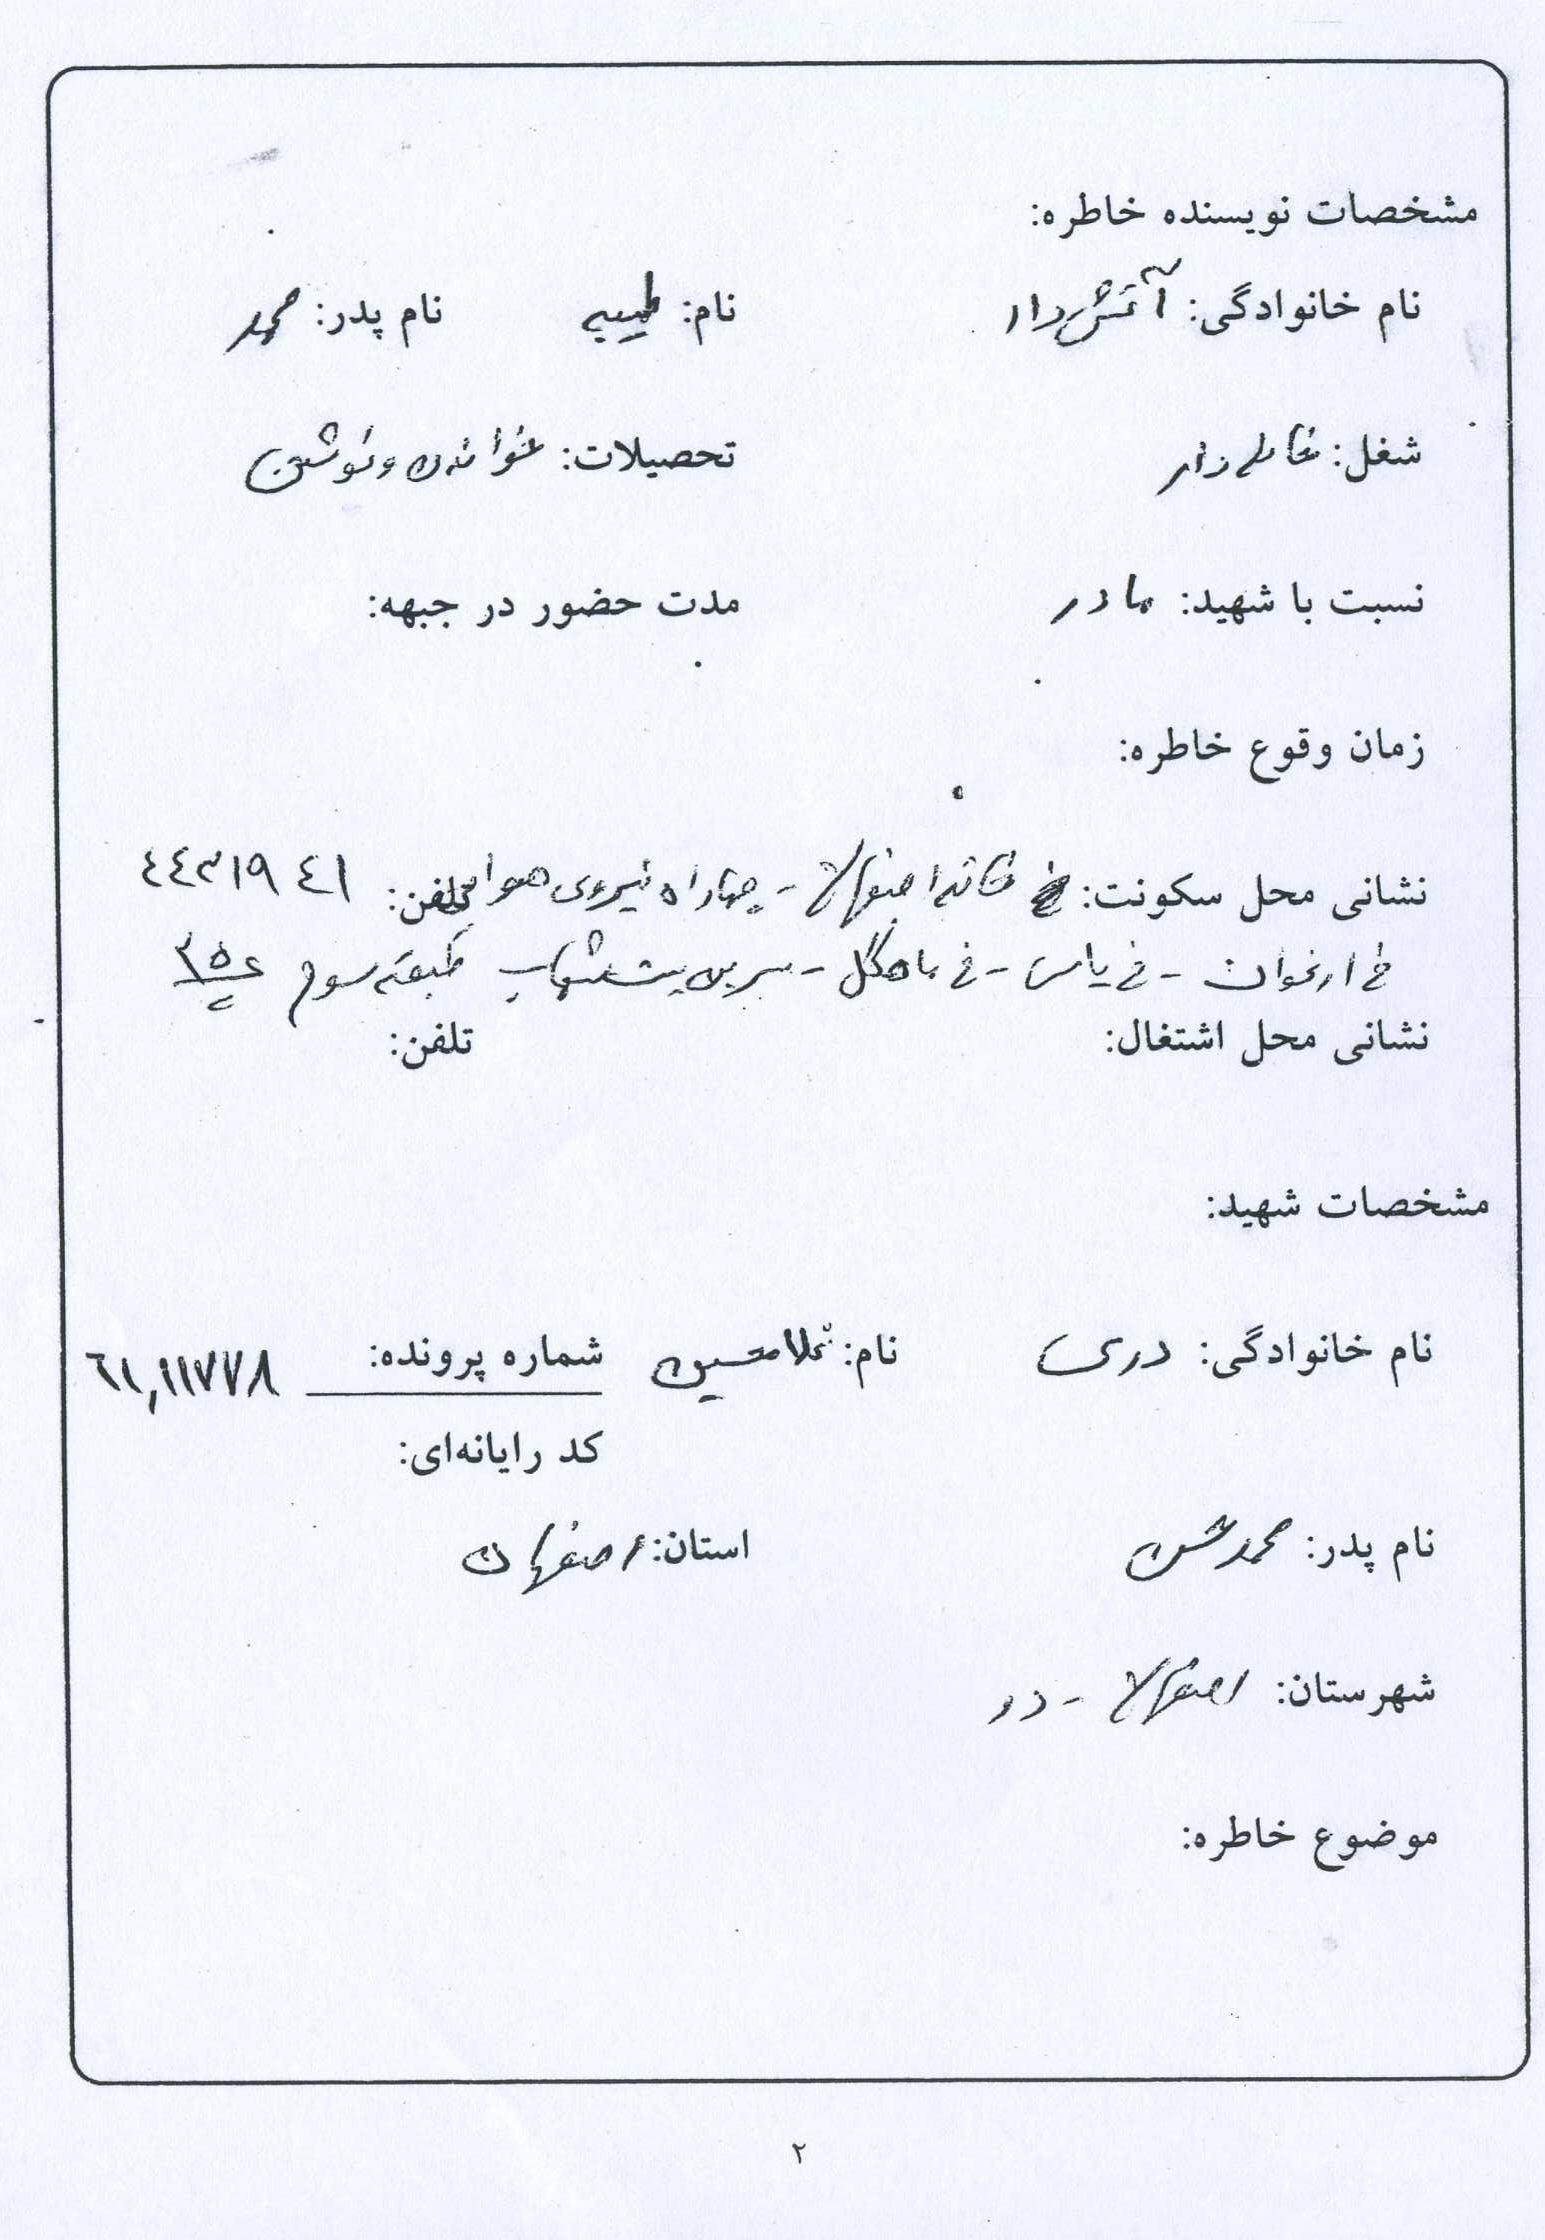 مشخصات نویسنده خاطره:
نام خانوادگی: آتش دار نام: طیبه نام پدر: محمد
شغل: خانه دار تحصیلات: خواندن و نوشتن
نسبت با شهید: مادر مدت حضور در جبهه:
زمان وقوع خاطره:
نشانی محل سکونت: خانه اصفهان - چهارراه نیروی هوایی تلفن: ٤٤٣١٩٤١
خ ارغوان - خ یاس - خ ماه گل - سر بن بست طبقه سوم
نشانی محل اشتغال: تلفن:
مشخصات شهید:
نام خانوادگی: دری نام: غلامحسین شماره پرونده: ٦١,١١٧٧٨
کد رایانه‌ای:
نام پدر: محمدحسن استان: اصفهان
شهرستان: اصفهان -
موضوع خاطره:
۲